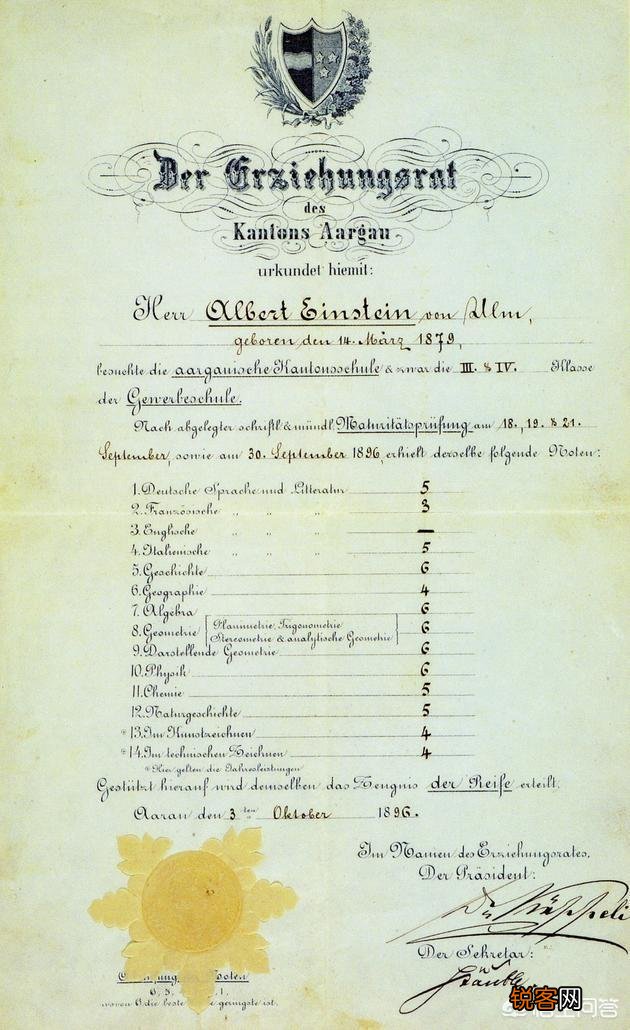 Der Erziehungsrat
des
Kantons Aargau
urkundet hiemit:
Herr Albert Einstein von Ulm,
geboren den 14. März 1879,
besuchte die aargauische Kantonsschule & zwar die III. & IV. Klasse
der Gewerbeschule.
Nach abgelegter schriftl. & mündl. Maturitätsprüfung am 18., 19. & 21.
September, sowie am 30. September 1896, erhielt derselbe folgende Noten:
1. Deutsche Sprache und Litteratur 5
2. Französische „ „ „ 3
3. Englische „ „ „ —
4. Italienische „ „ „ 5
5. Geschichte 6
6. Geographie 4
7. Algebra 6
8. Geometrie [Planimetrie, Trigonometrie 6
Stereometrie & analytische Geometrie]
9. Darstellende Geometrie 6
10. Physik 6
11. Chemie 5
12. Naturgeschichte 5
*13. Im Kunstzeichnen 4
*14. Im technischen Zeichnen 4
*Hier gelten die Jahresleistungen
Gestützt hierauf wird demselben das Zeugnis der Reife erteilt.
Aarau den 3ten Oktober 1896.
Im Namen des Erziehungsrates,
Der Präsident:
Der Sekretär:
Noten
wovon 6 die beste geringste ist.
锐客网
悟空问答